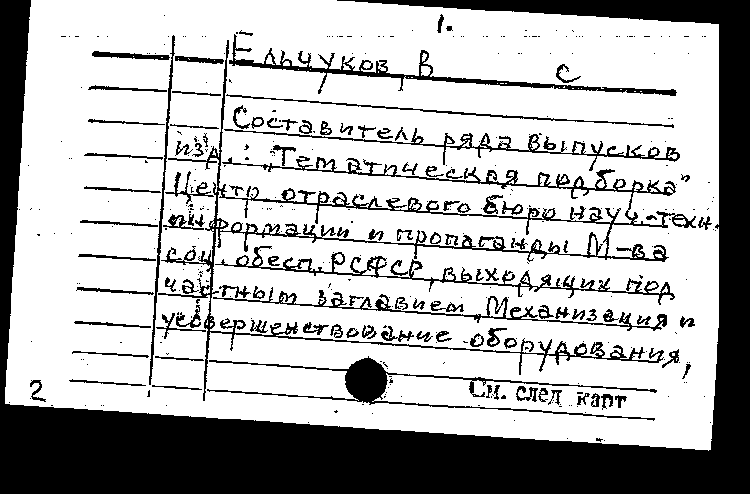 1.
Ельчуков, В С
Составитель ряда выпусков
изд.: „Тематическая подборка"
Центр отраслевого бюро науч.-техн.
информации и пропаганды М-ва
соц. обесп. РСФСР, выходящих под
частным заглавием „Механизация и
усовершенствование оборудования,
См. след карт
2